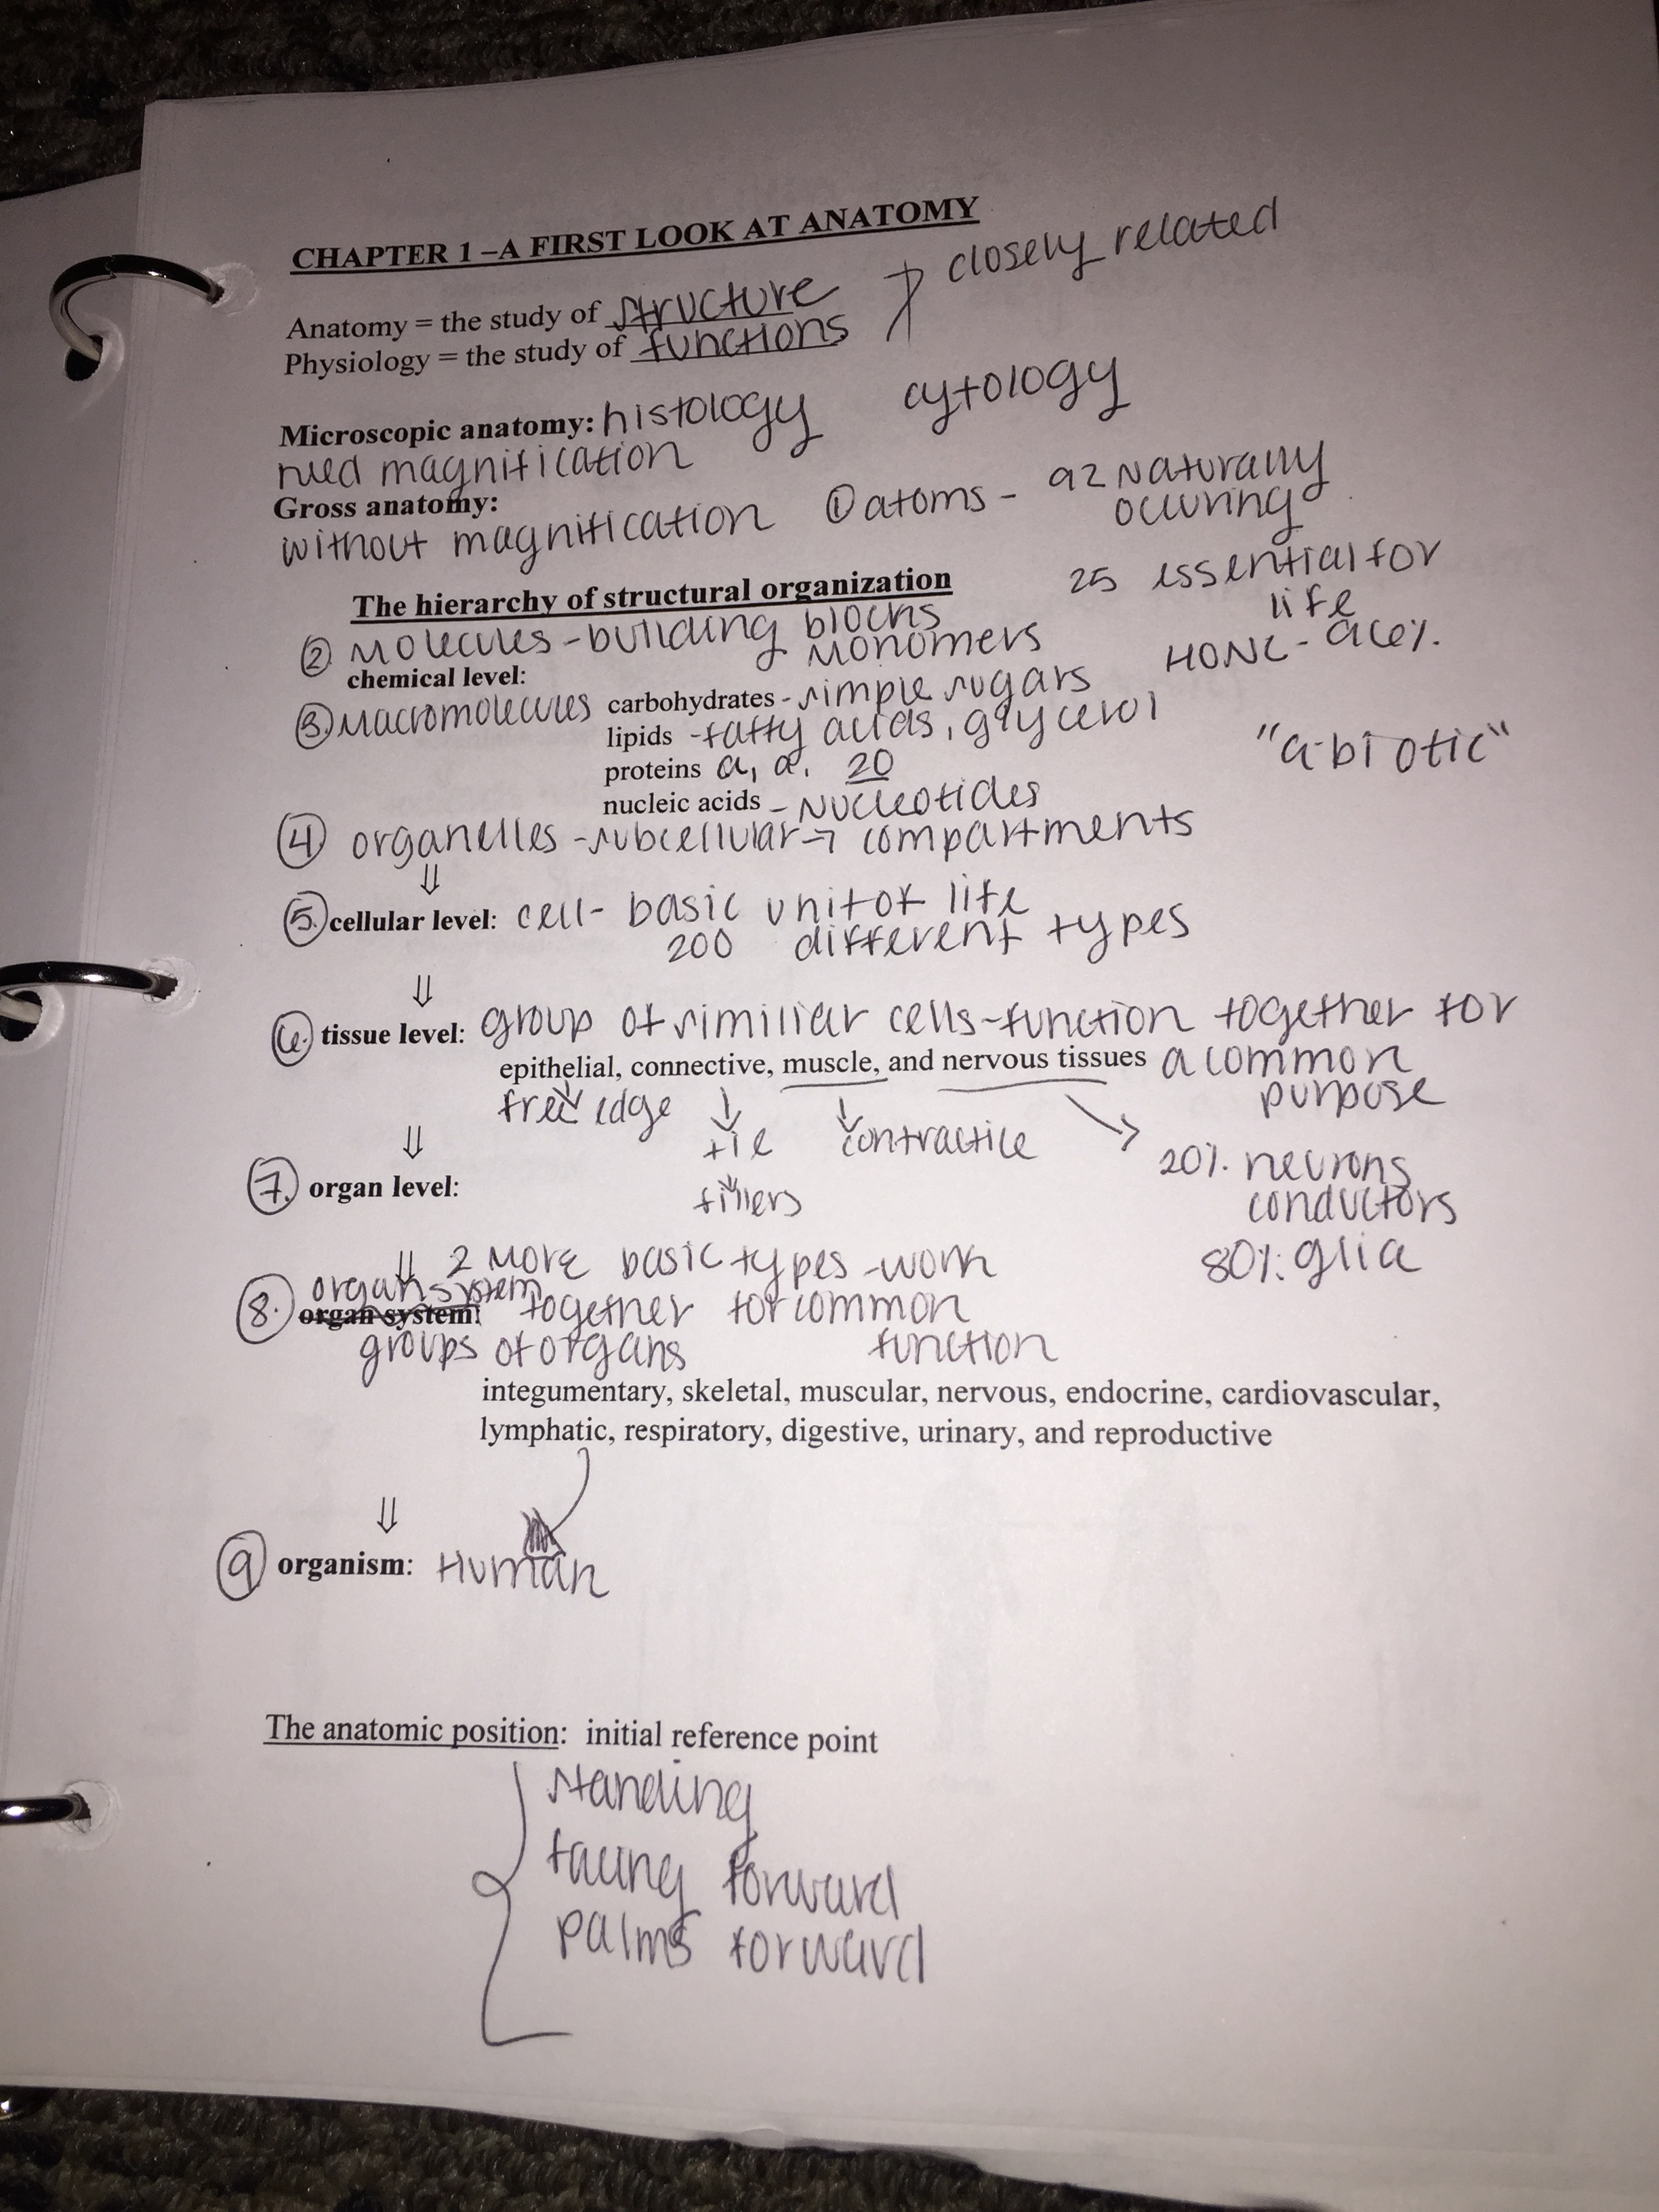 CHAPTER 1 –A FIRST LOOK AT ANATOMY
closely related
Anatomy = the study of structure
Physiology = the study of functions
Microscopic anatomy: histology cytology
need magnification
Gross anatomy:
without magnification
① atoms - 92 Naturally
occuring
25 essential for
life
HONC - 96%
"a-biotic"
The hierarchy of structural organization
② Molecules - building blocks
Monomers
chemical level:
③ Macromolecules carbohydrates - simple sugars
lipids - fatty acids, glycerol
proteins a, a. 20
nucleic acids - Nucleotides
④ organelles - subcellular → compartments
⇓
⑤ cellular level: cell - basic unit of life
200 different types
⇓
⑥ tissue level: group of similiar cells - function together for
epithelial, connective, muscle, and nervous tissues a common
purpose
free edge
tie
fillers
contractile
20% neurons
conductors
80% glia
⇓
⑦ organ level:
⇓ 2 More basic types - work
together for common
function
⑧ organ system
organ system:
groups of organs
integumentary, skeletal, muscular, nervous, endocrine, cardiovascular,
lymphatic, respiratory, digestive, urinary, and reproductive
⇓
⑨ organism: Human
The anatomic position: initial reference point
standing
facing forward
palms forward